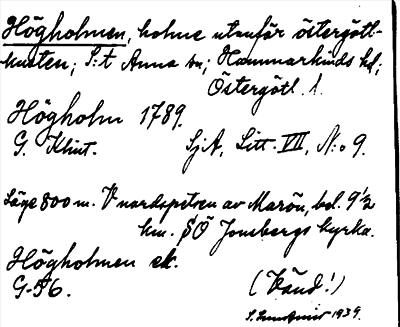 Högholmen, holme utanför östergött-
kusten; S:t Anna sn; Hammarkinds hd;
Östergötl. l.
Högholm 1789.
G. Klint. SjA, Litt. VII, N:o 9.
Läge 800 m. V nordspetsen av Marön, bel. 9 1/2
km. SÖ Jonsbergs kyrka.
Högholmen ek.
G-56. (Vänd!)
1939.